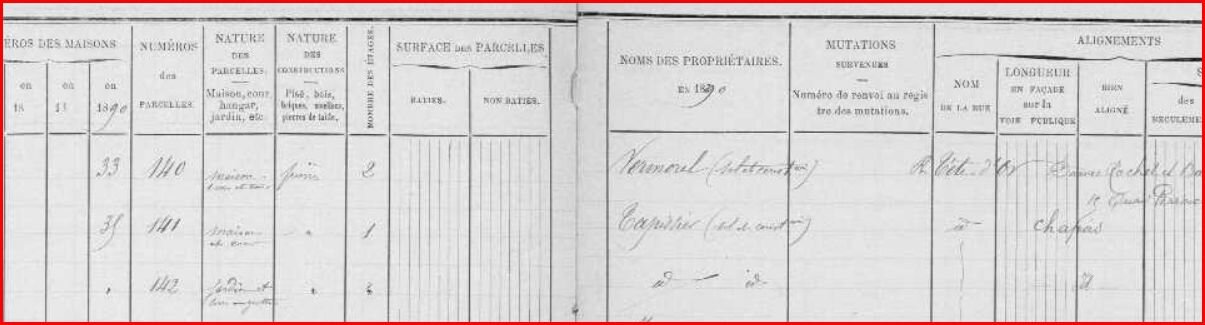 EROS DES MAISONS
en 18
en 18
en 1890
NUMÉROS
des
PARCELLES.
NATURE
DES
PARCELLES.
Maison, cour,
hangar,
jardin, etc
NATURE
DES
CONSTRUCTIONS
Pisé, bois,
briques, moellons,
pierres de taille.
NOMBRE DES ÉTAGES.
SURFACE DES PARCELLES
BATIES.
NON BATIES.
NOMS DES PROPRIÉTAIRES.
EN 1890
MUTATIONS
SURVENUES
Numéro de renvoi au regis
tre des mutations.
ALIGNEMENTS
NOM
DE LA RUE
LONGUEUR
EN FAÇADE
sur la
VOIE PUBLIQUE
BIEN
ALIGNÉ
S
des
RECULEME
33 140 maison 2 Vermorel (sol et const on) R Tête-d'Or
Quai
35 141 maison et cour " 1 Tapissier (sol et const on) id Chapas
" 142 jardin et " " id id id